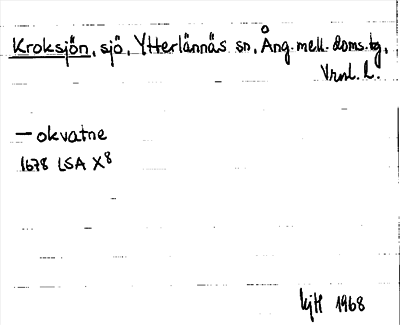 Kroksjön, sjö, Ytterlännäs sn, Ång. mell. doms. tg,
Vrnl. l.
— okvatne
1678 LSA X8
kjH 1968